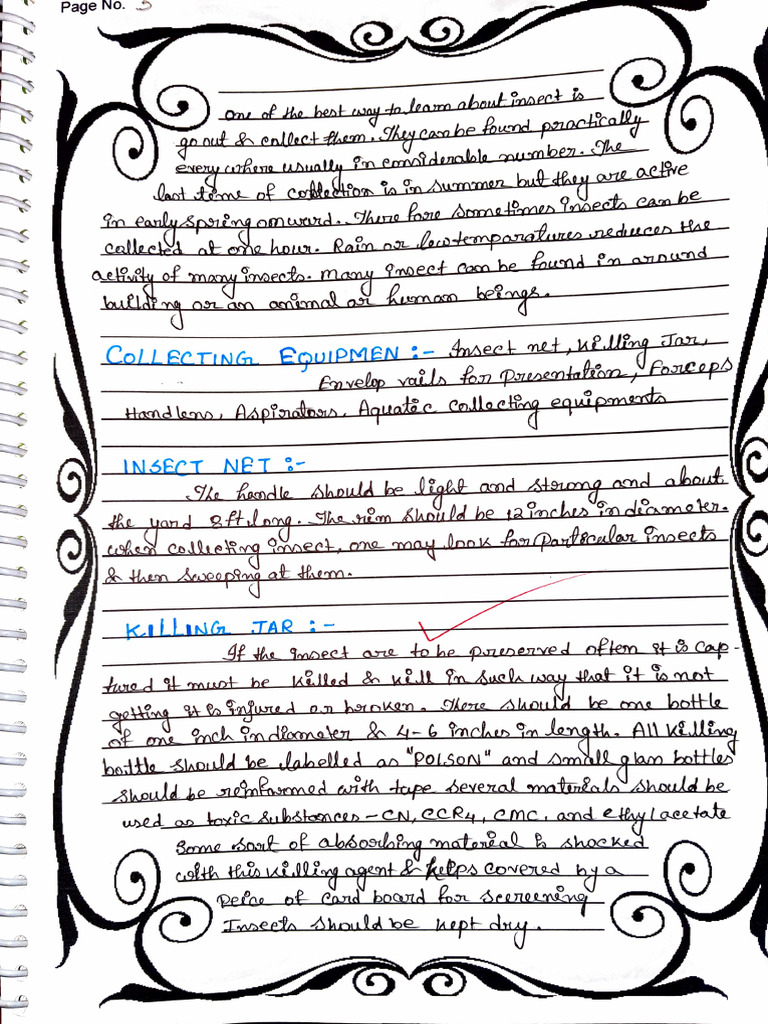 Page No. 3
One of the best way to learn about insect is
go out & collect them. They can be found practically
every where usually in considerable number. The
last time of collection is in summer but they are active
in early spring onward. There fore sometimes insects can be
collected at one hour. Rain or low temparatures reduces the
activity of many insects. Many insect can be found in around
building or an animal or human beings.
COLLECTING EQUIPMEN :- Insect net, Killing Jar,
Envelop vails for Presentation, Forceps
Handlens, Aspirators, Aquatic collecting equipments
INSECT NET :-
The handle should be light and strong and about
the yard 8ft long. The rim should be 12 inches in diameter.
when collecting insect, one may look for Particular insects
& then sweeping at them.
KILLING JAR :-
If the insect are to be preserved often it is cap-
tured it must be killed & kill in such way that it is not
getting it is injured or broken. There should be one bottle
of one inch in diameter & 4-6 inches in length. All killing
bottle should be labelled as "POISON" and small glan bottles
should be reinfarmed with tape several materials should be
used as toxic substances - CN, CCR4, CMC. and ethylacetate
Some sort of absorbing material is shocked
with this killing agent & helps covered by a
Peice of card board for screening
Insects should be kept dry.